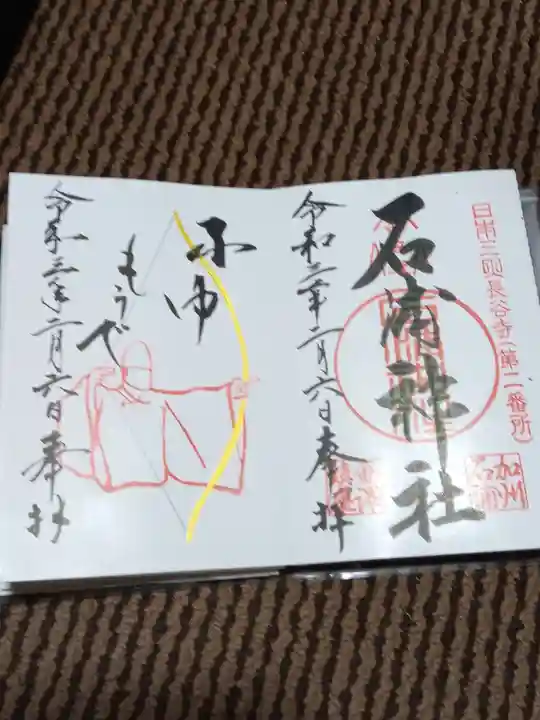 日本三所長谷寺(第二番所)
石浦神社
加州
石浦
令和三年二月六日奉拝
ふゆ
もうで
令和三年二月六日奉拝